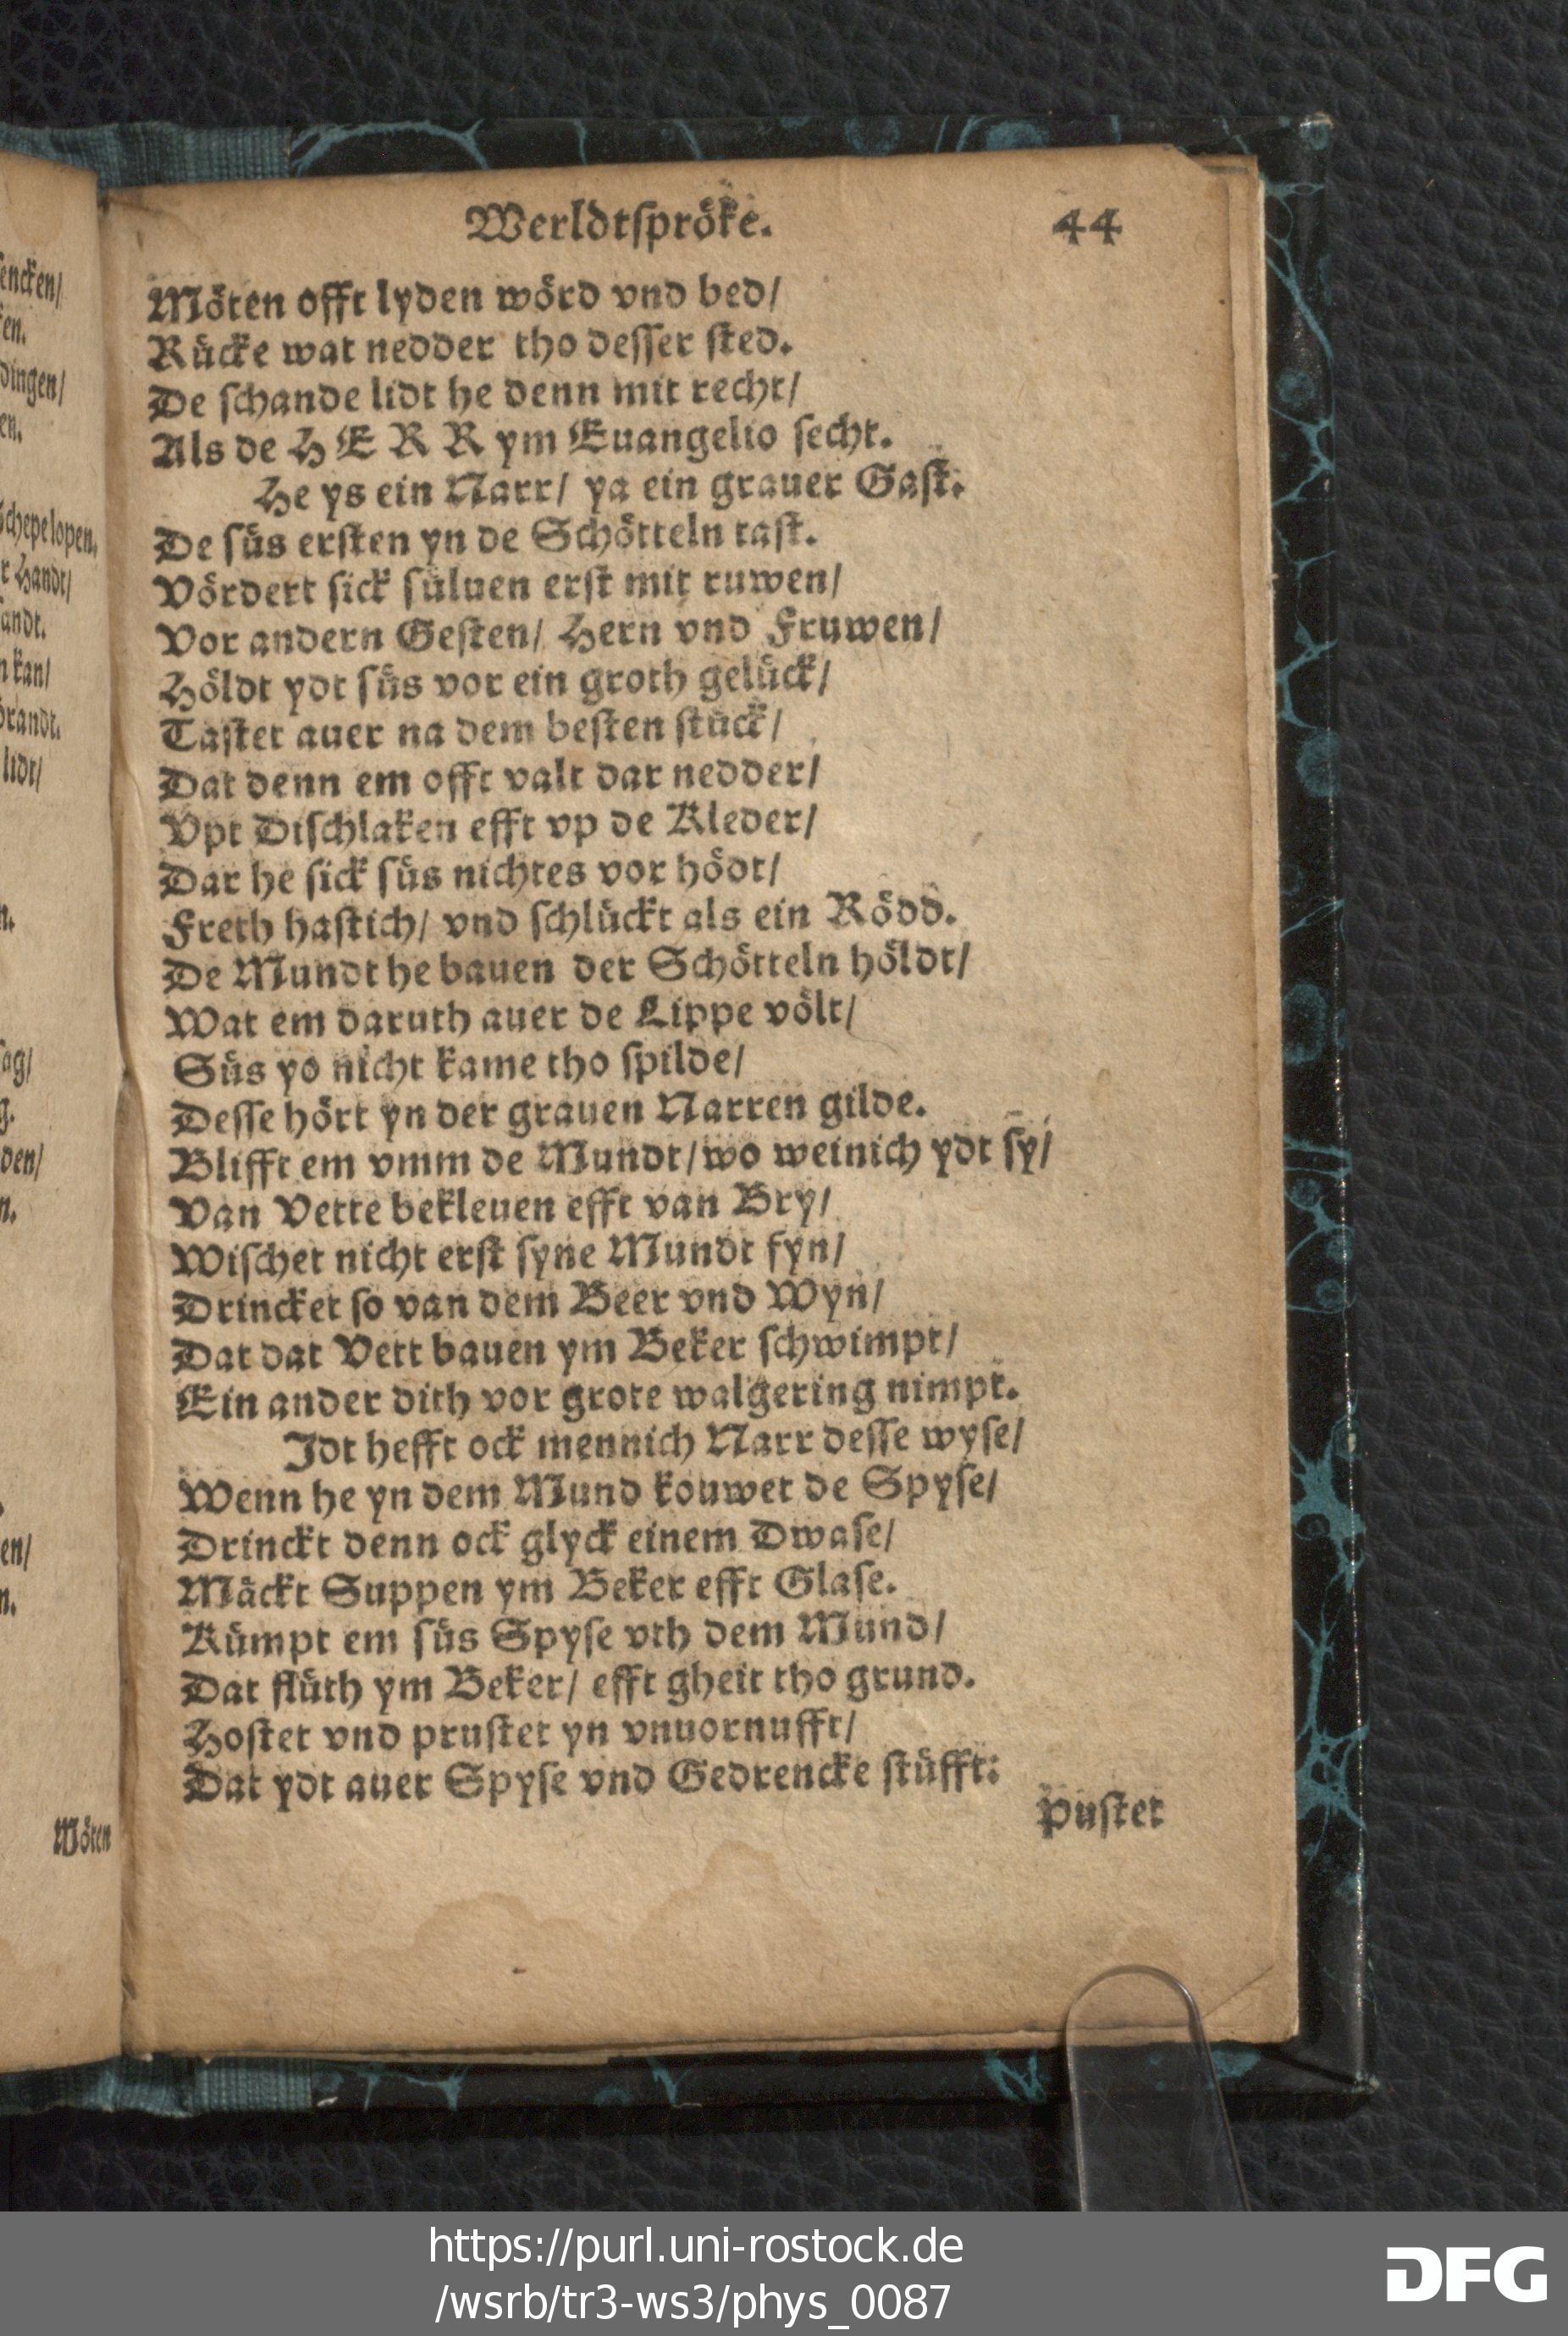 encken/
en.
dingen/
en.
Schepelopen.
r Handt/
andt.
n kan/
brandt.
lidt/
n.
ag/
g.
den/
n.
en/
n.
Möten
Werldtſpröke. 44
Möten offt lyden wörd vnd bed/
Rücke wat nedder tho deſſer ſted.
De ſchande lidt he denn mit recht/
Als de HERR ym Euangelio ſecht.
He ys ein Narr/ ya ein grauer Gaſt.
De ſüs erſten yn de Schötteln taſt.
Vördert ſick ſüluen erſt mit ruwen/
Vor andern Geſten/ Hern vnd Fruwen/
Höldt ydt ſüs vor ein groth gelück/
Taſtet auer na dem beſten ſtück/
Dat denn em offt valt dar nedder/
Vpt Diſchlaken efft vp de Kleder/
Dar he ſick ſüs nichtes vor hödt/
Freth haſtich/ vnd ſchlückt als ein Rödd.
De Mundt he bauen der Schötteln höldt/
Wat em daruth auer de Lippe völt/
Süs yo nicht kame tho ſpilde/
Deſſe hört yn der grauen Narren gilde.
Blifft em vmm de Mundt/ wo weinich ydt ſy/
Van Vette bekleuen efft van Bry/
Wiſchet nicht erſt ſyne Mundt fyn/
Drincket ſo van dem Beer vnd Wyn/
Dat dat Vett bauen ym Beker ſchwimpt/
Ein ander dith vor grote walgering nimpt.
Idt hefft ock mennich Narr deſſe wyſe/
Wenn he yn dem Mund kouwet de Spyſe/
Drinckt denn ock glyck einem Dwaſe/
Mäckt Suppen ym Beker efft Glaſe.
Kümpt em ſüs Spyſe vth dem Mund/
Dat flüth ym Beker/ efft gheit tho grund.
Hoſtet vnd pruſtet yn vnuornufft/
Dat ydt auer Spyſe vnd Gedrencke ſtüfft:
Puſtet
https://purl.uni-rostock.de
/wsrb/tr3-ws3/phys_0087
DFG